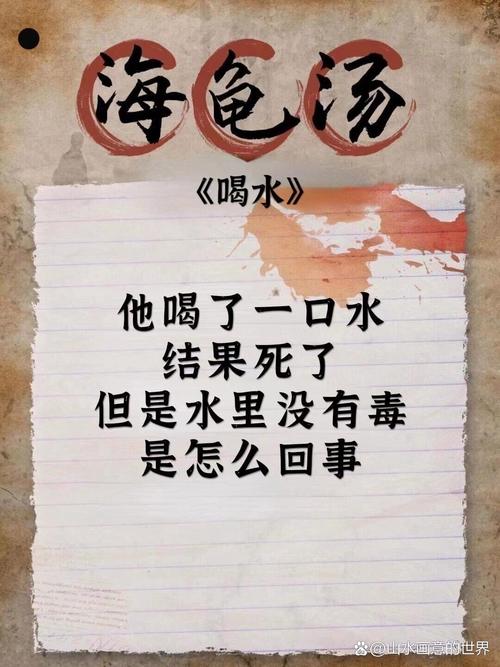 海龟汤
《喝水》
他喝了一口水
结果死了
但是水里没有毒
是怎么回事
@山水画意的世界